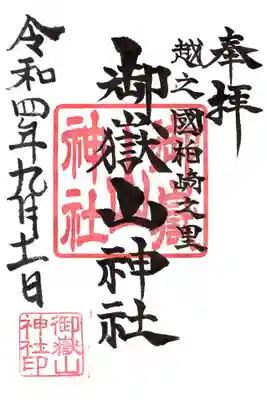 奉拝
越之國柏崎之里
御嶽山神社
令和四年九月十一日
御嶽
山
神社
御嶽山
神社印